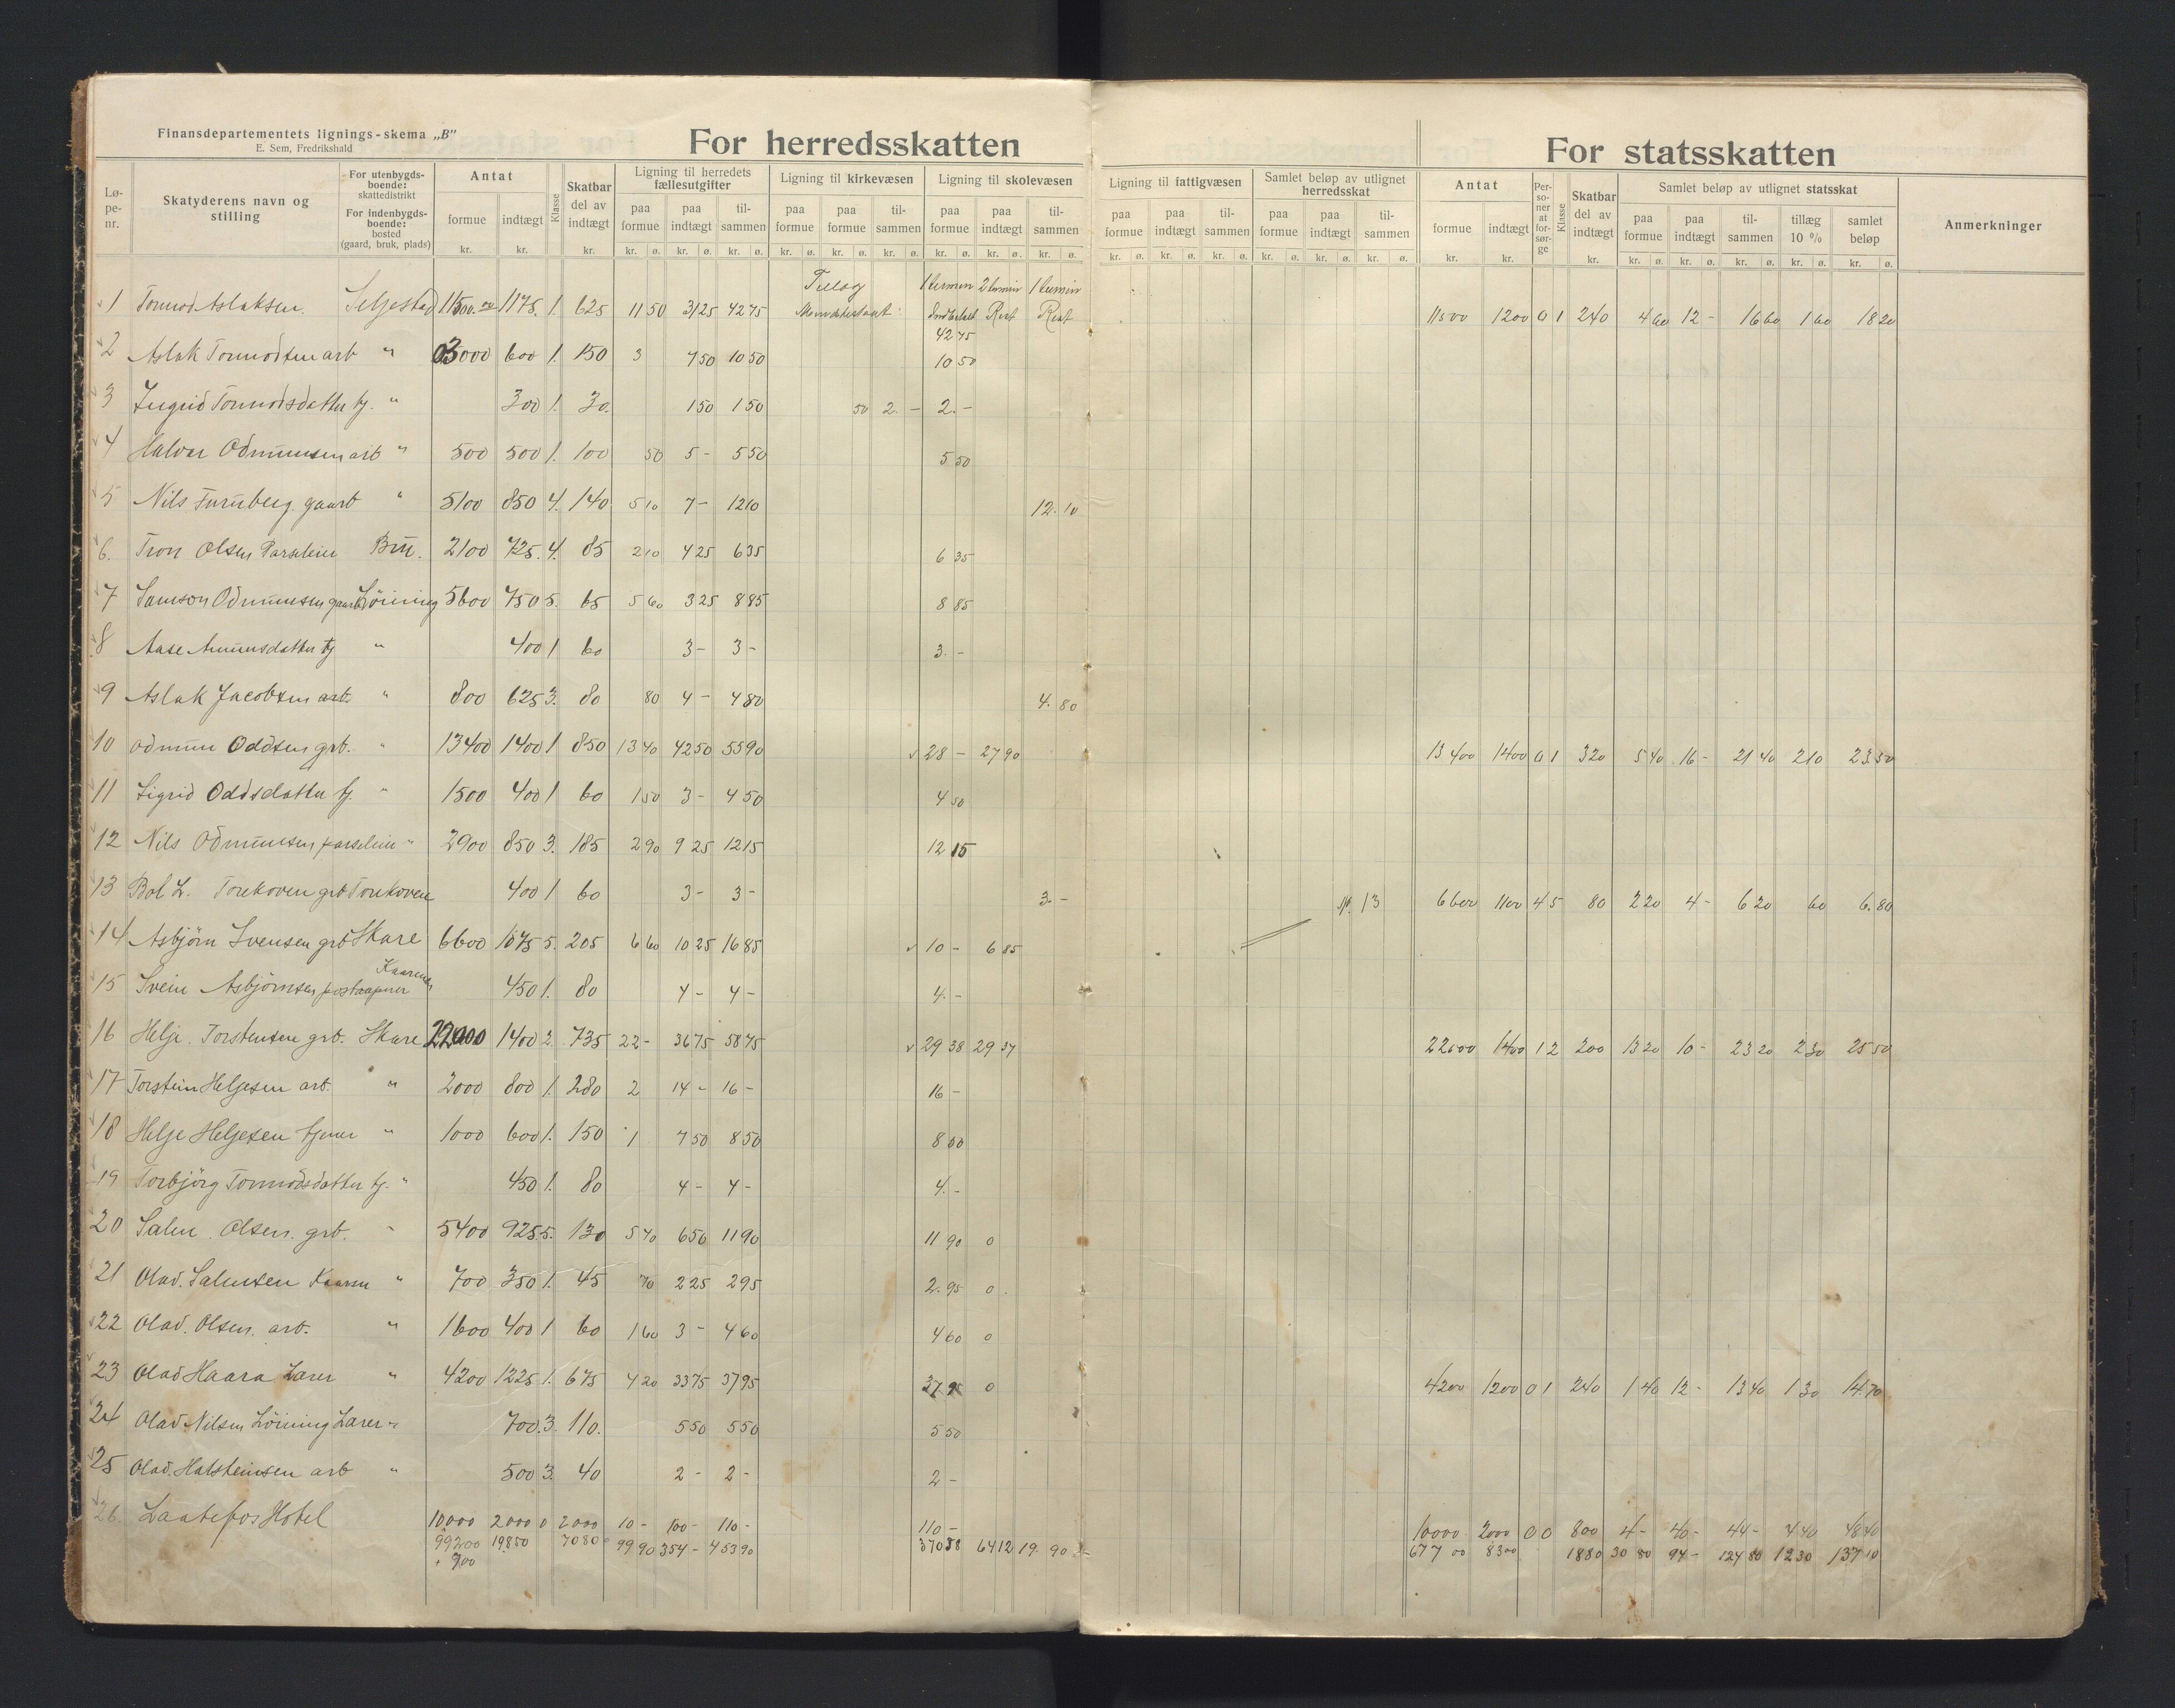 Finansdepartementets lignings-skema „B"
E. Sem, Fredrikshald
For herredsskatten
For statsskatten
Lø-pe-nr. Skatyderens navn og stilling For utenbygds-boende: skattedistrikt For indenbygds-boende: bosted (gaard, bruk, plads) Antat formue kr. indtægt kr. Klasse Skatbar del av indtægt kr. Ligning til herredets fællesutgifter paa formue kr. ø. paa indtægt kr. ø. til-sammen kr. ø. Ligning til kirkevæsen paa formue kr. ø. paa formue kr. ø. til-sammen kr. ø. Ligning til skolevæsen paa formue kr. ø. paa indtægt kr. ø. til-sammen kr. ø. Ligning til fattigvæsen paa formue kr. ø. paa indtægt kr. ø. til-sammen kr. ø. Samlet beløp av utlignet herredsskat paa formue kr. ø. paa indtægt kr. ø. til-sammen kr. ø. Antat formue kr. indtægt kr. Per-so-ner at for-sør-ge Klasse Skatbar del av indtægt kr. Samlet beløp av utlignet statsskat paa formue kr. ø. paa indtægt kr. ø. til-sammen kr. ø. tillæg 10 % kr. ø. samlet beløp kr. ø. Anmerkninger
Tillæg 1 termin 2 termin 1 termin
1 Tormod Aslaksen. Seljestad 11500 1175. 1. 625 11 50 31 25 42 75 Indbetalt Rest Rest 11500 1200 0 1 240 4 60 12 - 16 60 1 60 18 20
42 75
2 Aslak Tormodsen arb " 3000 600 1. 150 3 7 50 10 50 10 50
3 Ingrid Tormodsdatter tj. " 300 1. 30. 1 50 1 50 50 2. - 2. -
4 Halvor Odmunsen arb " 500 500 1. 100 50 5 - 5 50 5 50
5 Nils Furuberg gaarb " 5100 850 4. 140 5 10 7 - 12 10 12. 10
6. Tron Olsen Parseleier Bru. 2100 725. 4. 85 2 10 4 25 6 35 6 35
7 Samson Odmunsen gaarb Löining 5600 750 5. 65 5 60 3 25 8 85 8 85
8 Aase Amunsdatter tj " 400 1 60 3 - 3 - 3. -
9 Aslak Jacobsen arb. " 800 625 3. 80 80 4 - 4 80 4. 80
10 Odmun Oddsen grb. " 13400 1400 1 850 13 40 42 50 55 90 28 - 27 90 13400 1400 0 1 320 5 40 16 - 21 40 2 10 23 50
11 Sigrid Oddsdatter tj. " 1500 400 1 60 1 50 3 - 4 50 4 50
12 Nils Odmunsen parseleier " 2900 850 3. 185 2 90 9 25 12 15 12 15
13 Bol L. Torekoven grb Torekoven 400 1 60 3 - 3 - 3. - 13 6600 1100 4 5 80 2 20 4 - 6 20 60 6. 80
14 Asbjörn Svensen grb Skare 6600 1075 5. 205 6 60 10 25 16 85 10 - 6 85
15 Svein Asbjörnsen postaapner 450 1. 80 4 - 4 - 4. -
16 Helje Torstensen grb. Skare 22000 1400 2. 735 22 - 36 75 58 75 29 38 29 37 22000 1400 1 2 200 13 20 10 - 23 20 2 30 25 50
17 Torstein Heljesen arb. " 2000 800 1. 280 2 14 - 16 - 16 -
18 Helje Heljesen tjener " 1000 600 1. 150 1 7 50 8 50 8 50
19 Torbjörg Tormodsdatter tj. " 450 1. 80 4 - 4 - 4. -
20 Salm. Olsen. grb. " 5400 925. 5. 130 5 40 6 50 11 90 11 90 0
21 Olav. Salmsen " 700 350 1. 45 70 2 25 2 95 2. 95 0
22 Olav. Olsen. arb. " 1600 400 1 60 1 60 3 - 4 60 4 60 0
23 Olav Haara Lærer " 4200 1225 1. 675 4 20 33 75 37 95 37 95 0 4200 1200 0 1 240 1 40 12 - 13 40 1 30 14. 70
24 Olav Nilsen Löining Lærer " 700. 3. 110. 5 50 5 50 5 50
25 Olav. Halsteinsen arb " 500 3. 40 2 - 2 - 2 -
26. Laatefos Hotel 10000 2000 0 2000 10 - 100 - 110 - 110 - 10000 2000 0 0 800 4 - 40 - 44 - 4 40 48 40
99200 19850 7080 99 90 354 - 453 90 370 58 64 12 19. 90 677 00 8300 1880 30 80 94 - 124 80 12 30 137 10
+ 700